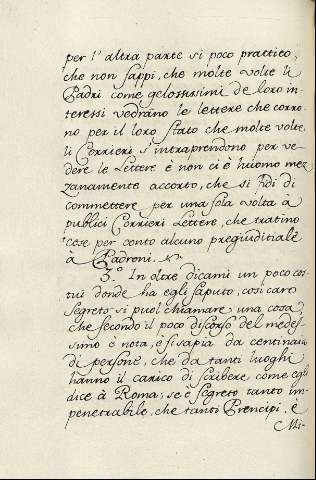 per l'altra parte si poco prattico,
che non sappi, che molte volte li
Padri come gelosissimi de loro in-
teressi vedrano le lettere che corro-
no per il loro stato che molte volte,
li Corrieri s'intraprendono per ve-
dere le Lettere è non ci è huomo mez-
zanamente accorto, che si fidi di
commettere per una sola volta à
publici Corrieri Lettere, che tratino
cose per conto alcuno pregiuditiale
à Padroni. &c.
3.° In oltre dicami un poco cos-
tui donde ha egli saputo, cosi caro
segreto si puol chiamare una cosa,
che secondo il poco discorso del medes-
simo è nota, è si sapia da centinaia
di persone, che da tanti luoghi
hanno il carico di scribere, come egli
dice à Roma; se è segreto tanto im-
penetrabile, che tanti Prencipi, è
Mi-